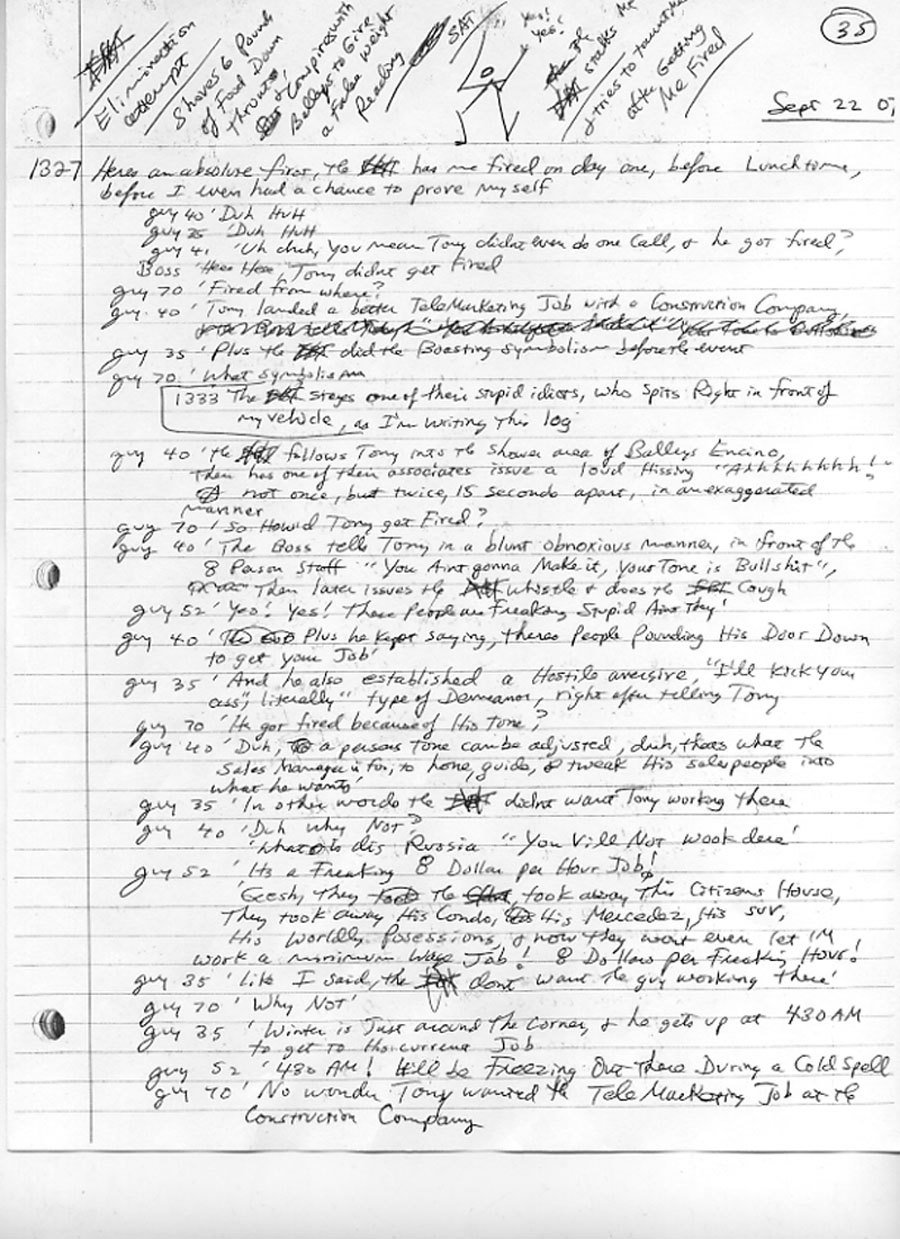 Elimination
attempt
Shoves 6 Pounds
of Food Down
throat,
& Conspires with
Balleys to Give
a false weight
Reading
SAT
yes!
yes!
stalks Me
& tries to taunt Me
after Getting
Me Fired
35
Sept 22 0,
1327 Heres an absolute first, the has me fired on day one, before Lunchtome,
before I even had a chance to prove myself
guy 40 'Duh Huh
guy 35 'Duh Huh
guy 41 'Uh duh, you mean Tony didnt even do one Call, & he got fired?
Boss Tony didnt get Fired
guy 70 'Fired from where?
guy 40 'Tony landed a better TeleMarketing Job with a Construction Company,
guy 35 'Plus the did the Boasting Symbolism before the event
guy 70 'What Symbolism
1333 The stages one of their stupid idiots, who spits Right in front of
my vehicle, as I'm writing this log
guy 40 'the follows Tony into the Shower area of Balleys Encino,
Then has one of their associates issue a loud Hissing "Ahhhhhhhh!"
not once, but twice, 15 seconds apart, in an exaggerated
manner
guy 70 'So How'd Tony get Fired?
guy 40 'The Boss tells Tony in a blunt obnoxious manner, in front of the
8 Person Staff "You Aint gonna Make it, your Tone is Bullshit",
Then later issues the whistle & does the Cough
guy 52 'Yeo! Yes! These People are Freaking Stupid Aint They!
guy 40 ' Plus he kept saying, theres People Pounding His Door Down
to get your Job'
guy 35 'And he also established a Hostile aversive, "I'll kick your
ass, literally" type of Demeanor, right after telling Tony
guy 70 'He got fired because of His Tone?
guy 40 'Duh, a persons Tone can be adjusted, duh, thats what the
Sales Manager is for, to hone, guide, & tweak His salespeople into
what he wants'
guy 35 'In other words the didnt want Tony working there
guy 40 'Duh Why Not?
'What is dis Russia "You Vill Not wook dere!
guy 52 'Its a Freaking 8 Dollar per Hour Job!
'Geesh, They the took away This Citizens House,
They took away His Condo, His Mercedez, His suv,
His Worldly Posessions, & now they wont even let IM
work a minimum Wage Job! 8 Dollars per Freaking Hour!
guy 35 'Like I said, the dont want the guy working there'
guy 70 'Why Not'
guy 35 'Winter is Just around the corner, & he gets up at 430 AM
to get to His current Job
guy 52 '430 AM! He'll be Freezing Out There During a Cold Spell
guy 70 'No wonder Tony wanted the TeleMarketing Job at the
Construction Company